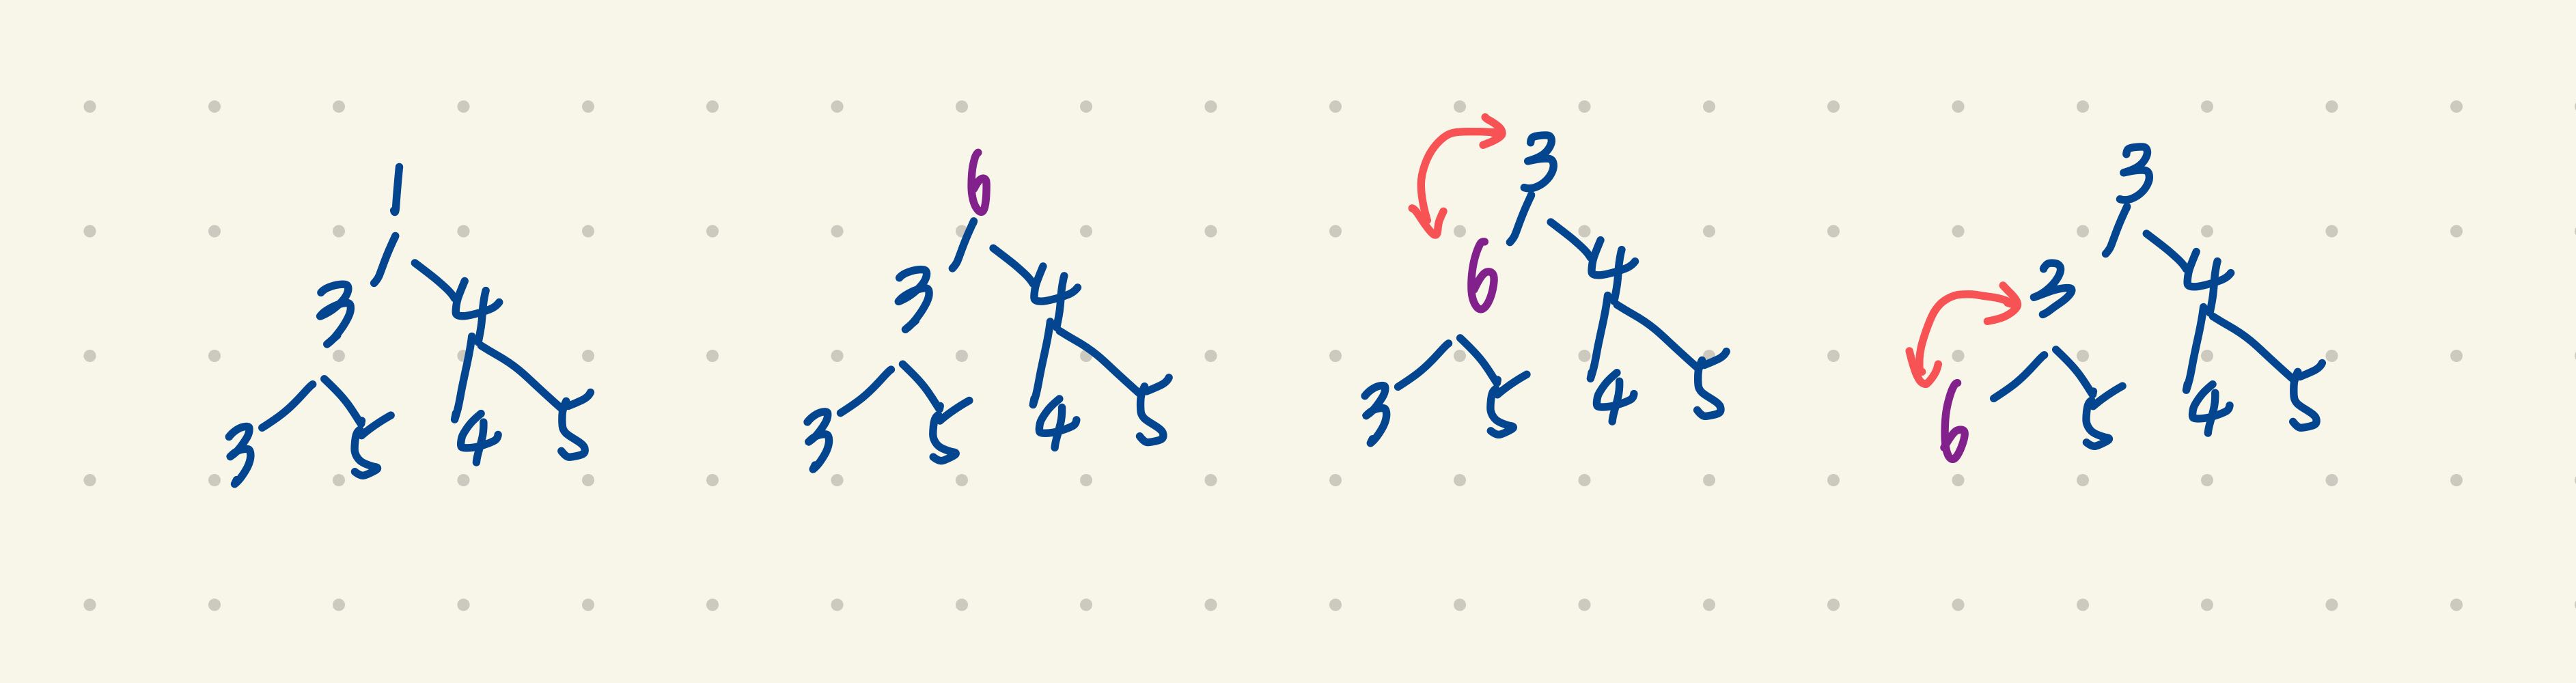 1
3 4
3 5 4 5
6
3 4
3 5 4 5
3
6 4
3 5 4 5
3
3 4
6 5 4 5